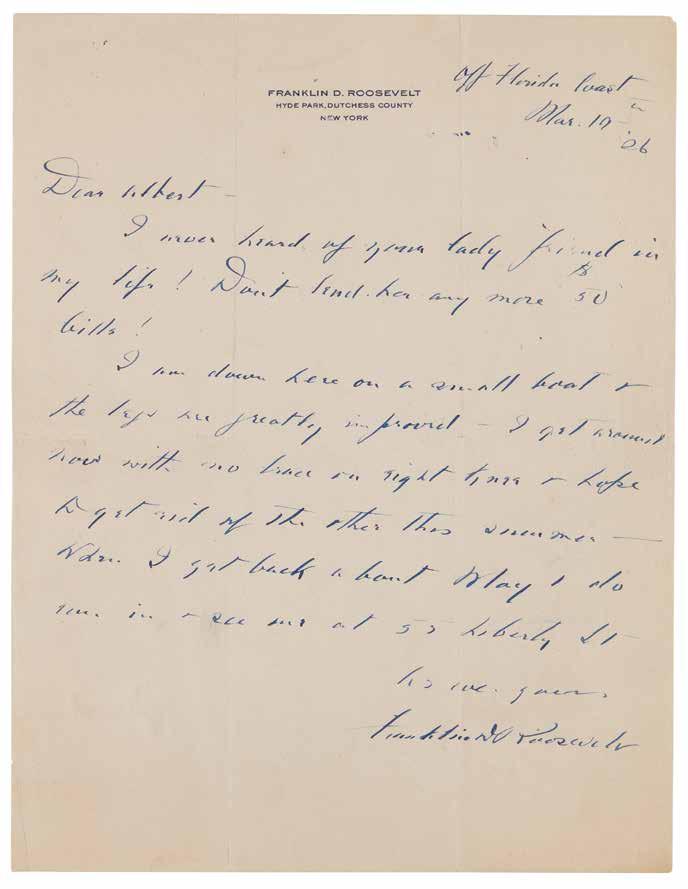 FRANKLIN D. ROOSEVELT
HYDE PARK, DUTCHESS COUNTY
NEW YORK
Off Florida Coast
Mar. 19
'26
Dear Albert –
I never heard of your lady friend in
my life! Don't lend her any more $50
bills!
I am down here on a small boat &
the legs are greatly improved – I get around
now with no brace on right knee & hope
to get rid of the other this summer –
When I get back about May 1 do
run in & see me at 55 Liberty St
As ever yours,
Franklin D Roosevelt